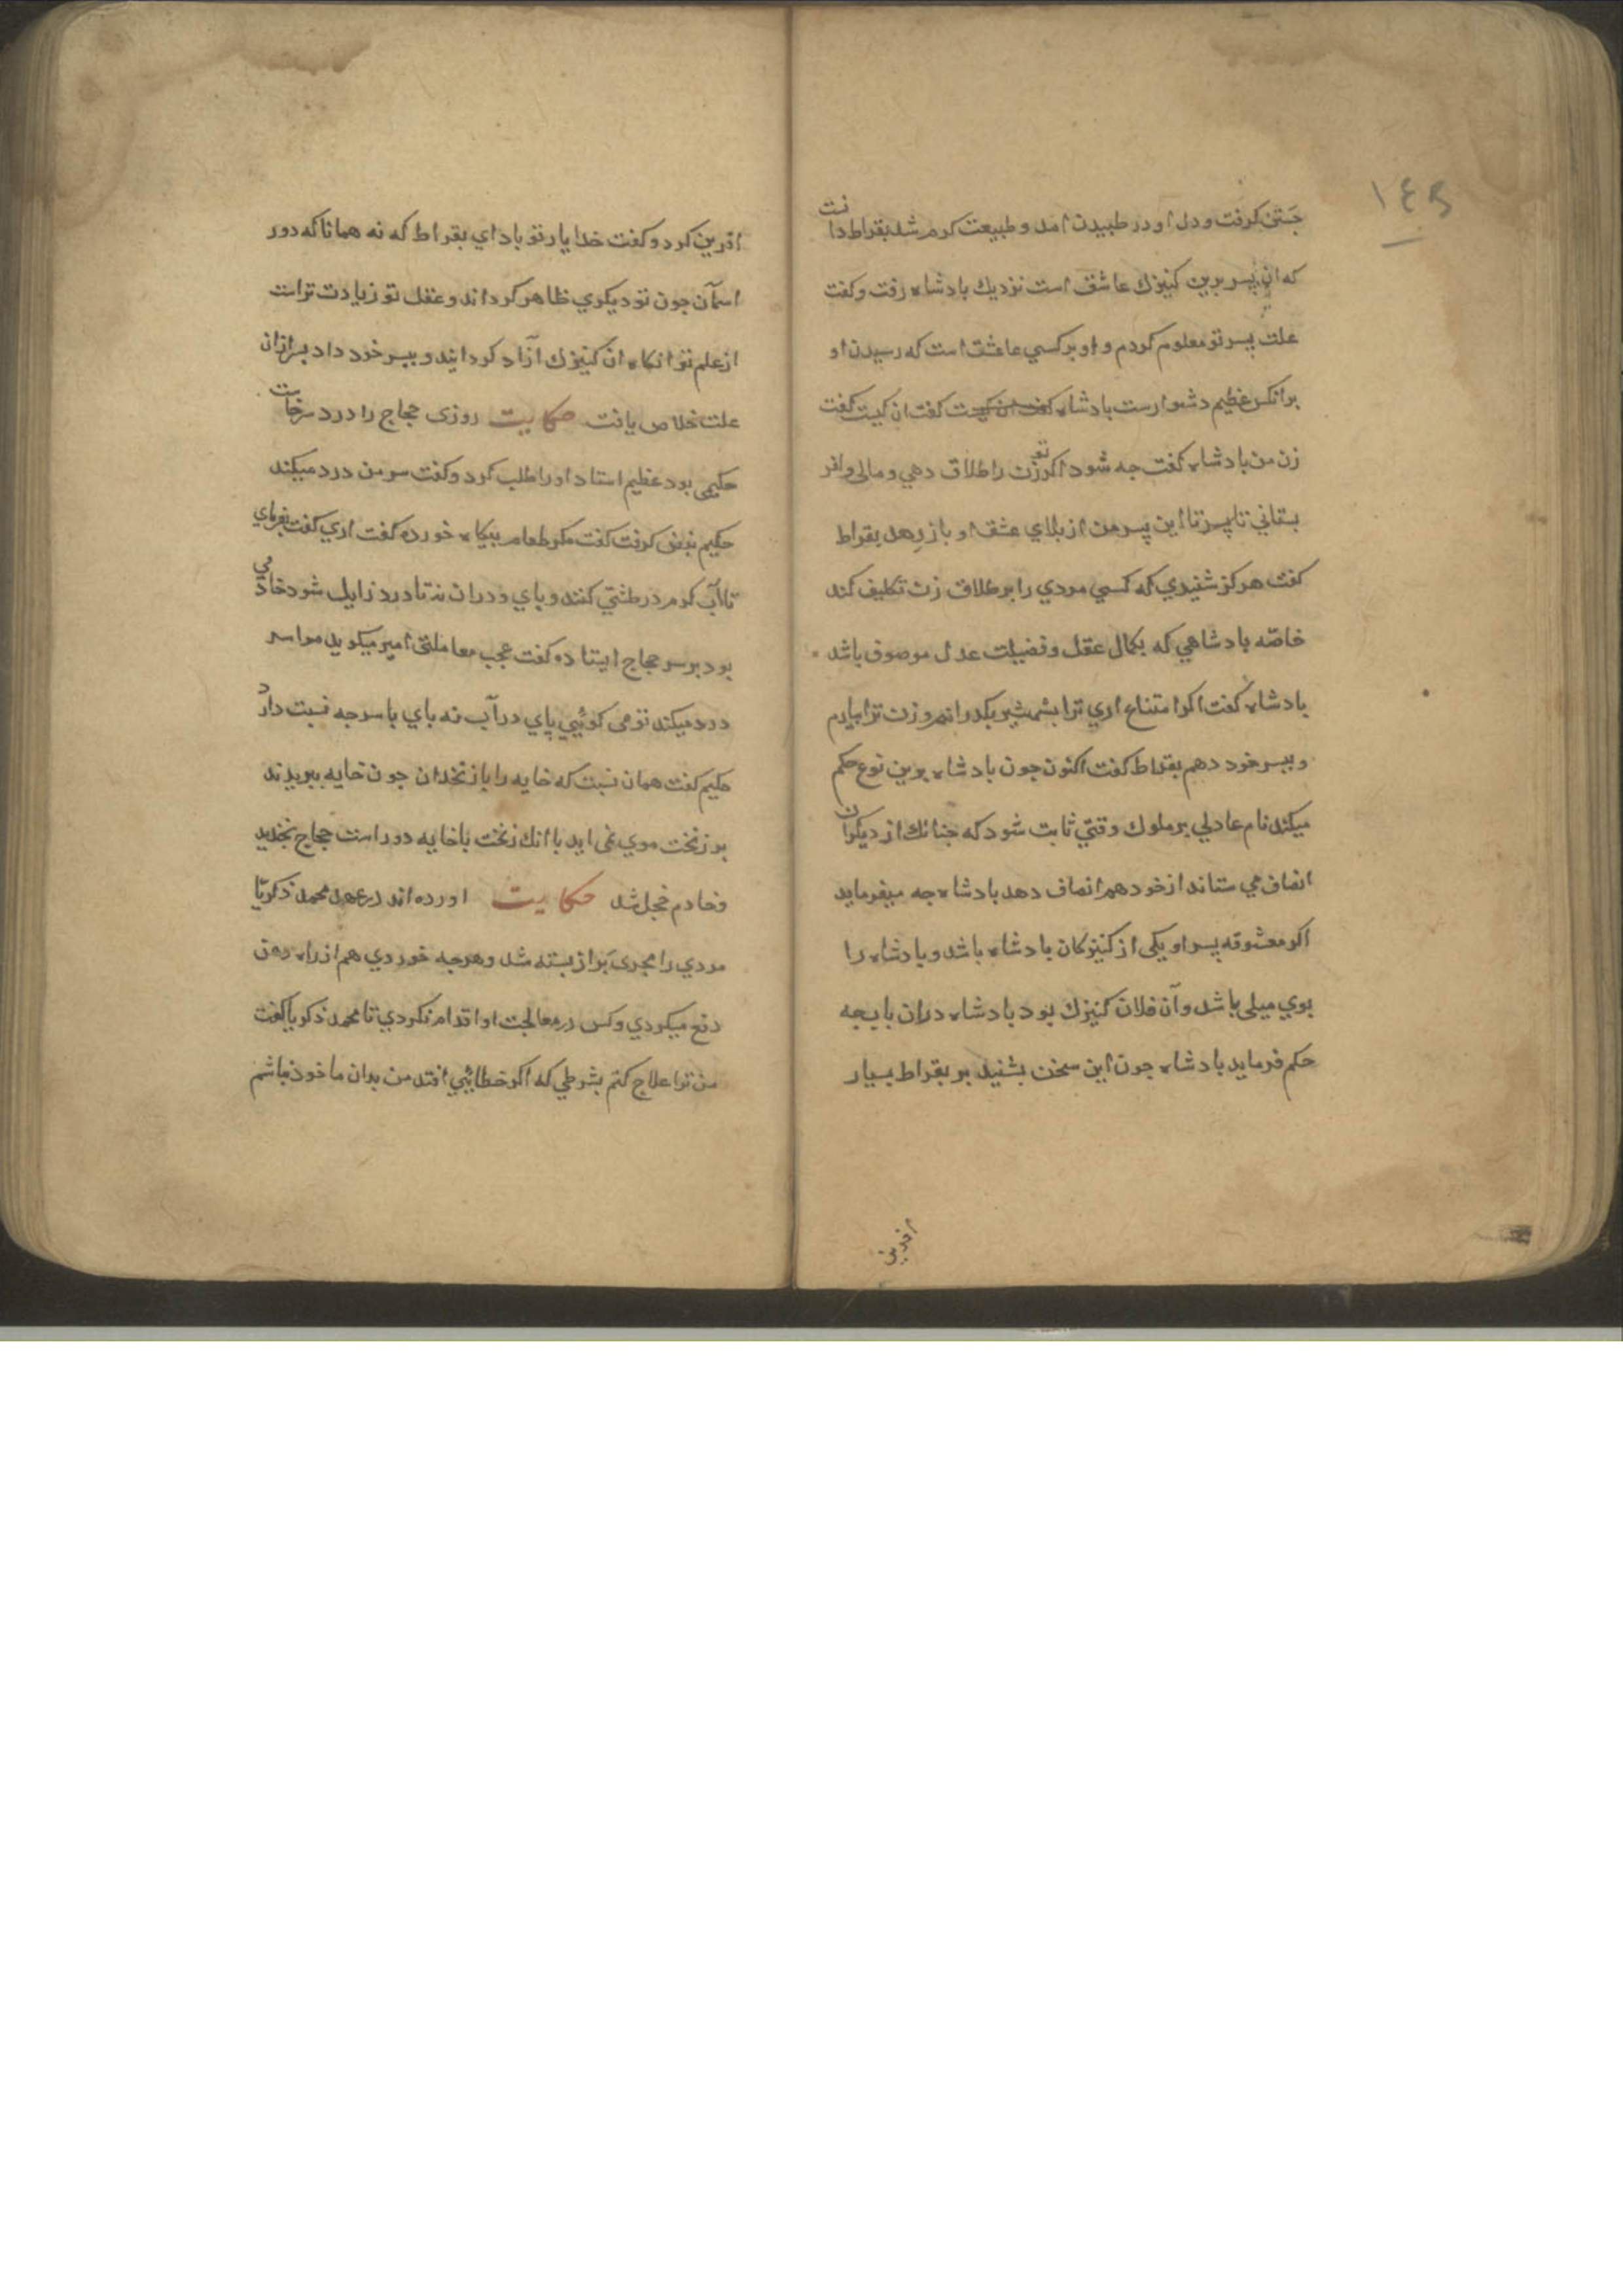 ۱۴۵
جستن كرفت و دل او در طبيدن امد و طبيعت كرم شد بقراط دانست
كه ان پسر برين كنيزك عاشق است نزديك بادشاه رفت و كفت
علت پسر تو معلوم كردم و او بر كسي عاشق است كه رسيدن او
برانكس عظيم دشوارست بادشاه كفت ان كيست كفت ان كيست كفت
زن من بادشاه كفت جه شود اكر تو زن را طلاق دهي و مالي وافر
بستاني تا پسر تا اين پسر من از بلاي عشق او باز رهد بقراط
كفت هركز شنيدي كه كسي مردي را بر طلاق زن تكليف كند
خاصّه بادشاهي كه بكمال عقل و فضيلت عدل موصوف باشد
بادشاه كفت اكر امتناع اري ترا بشمشير بكذرانم و زن ترا بيارم
و بپسر خود دهم بقراط كفت اكنون جون بادشاه برين نوع حكم
ميكند نام عادلي بر ملوك وقتي ثابت شود كه جنانك از ديكران
انصاف مي ستاند از خود هم انصاف دهد بادشاه جه ميفرمايد
اكر معشوقه پسر او يكي از كنيزكان بادشاه باشد و بادشاه را
بوي ميلي باشد و آن فلان كنيزك بود بادشاه دران باب جه
حكم فرمايد بادشاه جون اين سخن بشنيد بر بقراط بسيار
افرين
افرين كرد و كفت خدا يار تو باد اي بقراط كه نه همانا كه دور
اسمآن جون تو ديكري ظاهر كرداند و عقل تو زيادت تراست
از علم تو انكاه ان كنيزك آزاد كردانيد و بپسر خود داد پسر ازان
علت خلاص يافت حكايت روزى حجاج را درد سر خاست
حكيمى بود عظيم استاد او را طلب كرد و كفت سر من درد ميكند
حكيم نبض كرفت كفت مكر طعام بيكاه خورده كفت اري كفت بفرماي
تا آب كرم در طشتي كنند و پاي در ان نه تا درد زايل شود خادمي
بود بر سر حجاج ايستاده كفت عجب معاملتى امير ميكويد مرا سر
درد ميكند تو مى كوئيي پاي در آب نه باي با سر جه نسبت دارد
حكيم كفت همان نسبت كه خايه را با زنخدان جون خايه ببريدند
بر زنخت موي نمى ايد با انك زنخت با خايه دور است حجاج بخنديد
و خادم خجل شد حكايت اورده اند در عهد محمد زكريّا
مردي را مجرى براز بسته شد و هرجه خوردي هم از راه دهن
دفع ميكردي و كس در معالجت او اقدام نكردي تا محمد زكريا كفت
من ترا علاج كنم بشرطي كه اكر خطايي افتد من بدان ماخوذ نباشم